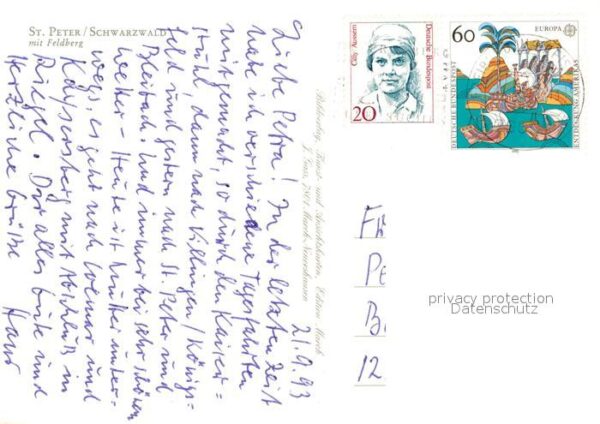 ST. PETER/SCHWARZWALD
mit Feldberg
21.9.93
Liebe Petra! In der letzten Zeit
habe ich verschiedene Tagesfahrten
mitgemacht, so durch den Kaiser=
stuhl dann nach Villingen/Königs=
feld und gestern nach St. Peter und
und immer bei sehr schönem
Wetter – Heute ist Mutter unter=
wegs, es geht nach Colmar und
Kaysersberg mit Abschluß in
Riegel. Dir alles Gute und
Herzliche Grüße Hans
Cilly Aussem
Deutsche Bundespost
20
60
EUROPA
DEUTSCHE BUNDESPOST
ENTDECKUNG AMERIKAS
FR
Pe
B
12
privacy protection
Datenschutz